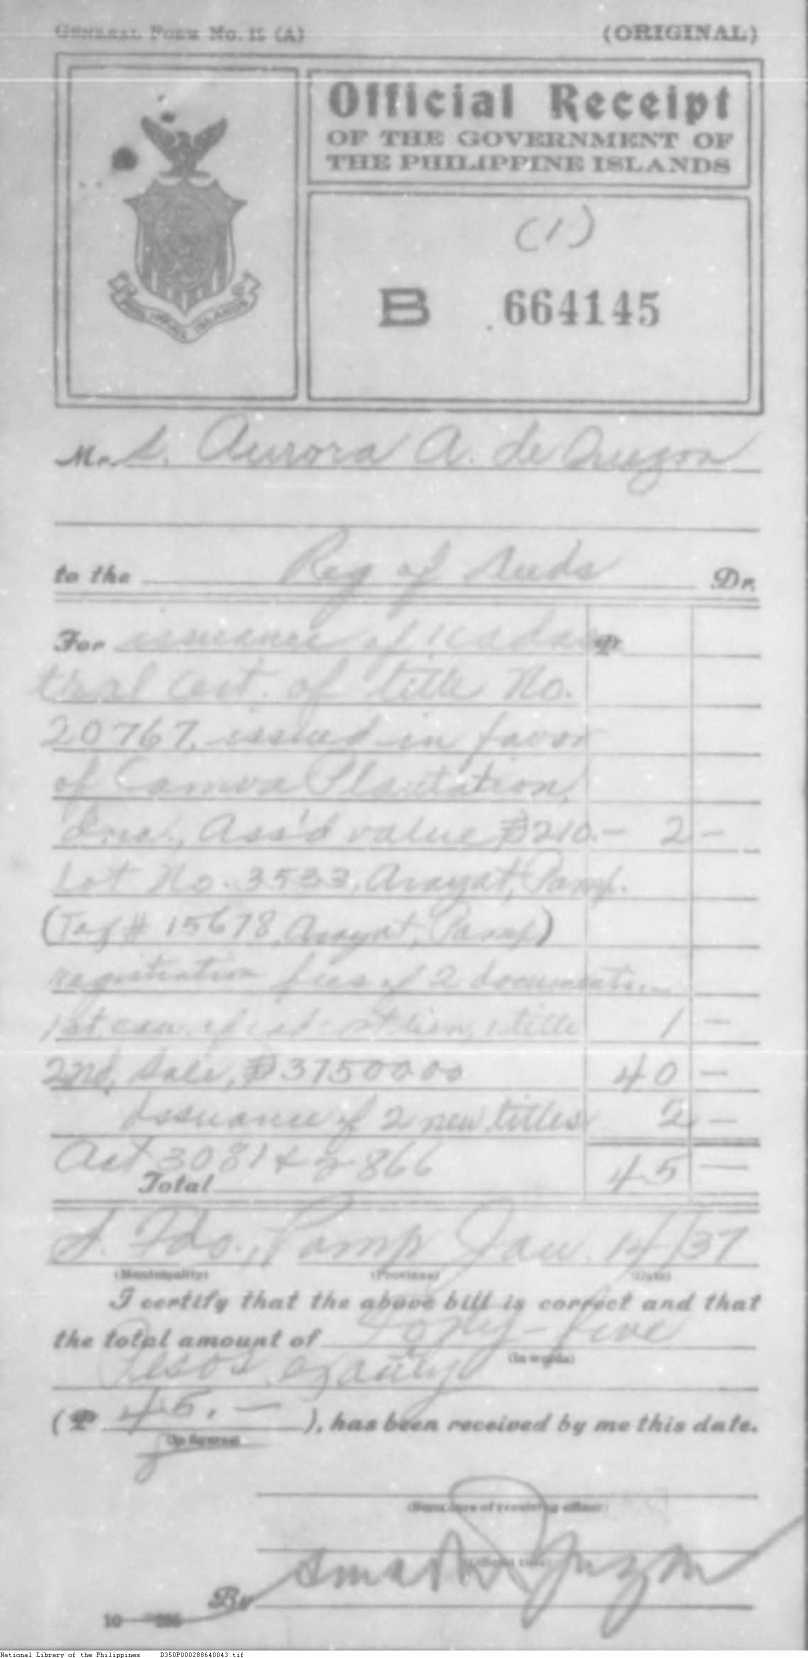 GENERAL FORM No. 15 (A) (ORIGINAL)
Official Receipt
OF THE GOVERNMENT OF
THE PHILIPPINE ISLANDS
(1)
B 664145
PHILIPPINE ISLANDS
Mr s. Aurora A. de Quezon
to the Reg of Deeds Dr.
For issuance of 1 cadas ₱
tral cert. of title No.
20767, issued in favor
of Camoa Plantation,
Inc., Ass'd value ₱210.— 2 —
Lot No. 3533, Arayat, Pamp.
(Tax # 15678, Arayat, Pamp)
registration fees of 2 documents.—
1st, can. of title 1 —
2nd, Sale, ₱37500.00 40 —
Issuance of 2 new titles 2 —
Act 3081 & 2866
Total 45 —
S. Fdo., Pamp Jan. 14/37
(Municipality) (Province) (Date)
I certify that the above bill is correct and that
the total amount of Forty-five
(In words)
Pesos exactly
(₱ 45.— ), has been received by me this date.
(In figures)
(Signature of receiving officer)
(Official title)
By
10
National Library of the Philippines D350P000288640043.tif